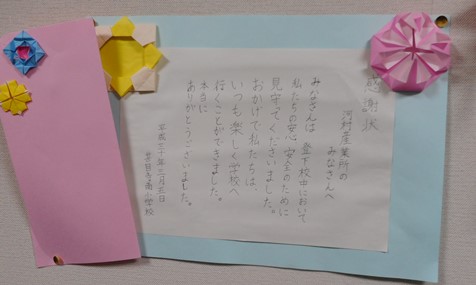 感謝状
河村産業所の
みなさんへ
みなさんは 登下校中において
私たちの安心 安全のために
見守ってくださいました。
おかげで私たちは、
いつも楽しく学校へ
行くことができました。
本当に
ありがとうございました。
平成三十年二月五日
南小学校